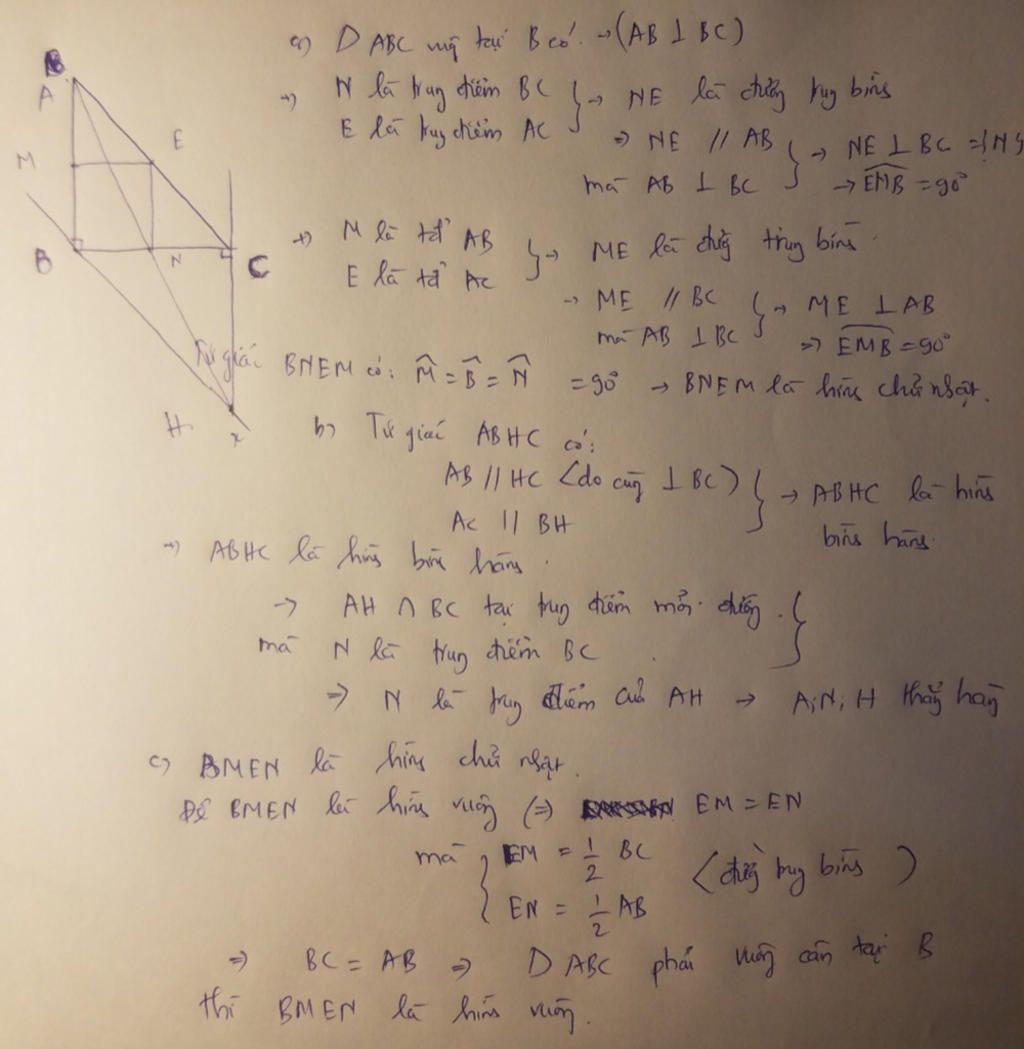 B
A
M
E
B
N
C
H
x
a) D ABC vuông tại B có → (AB ⊥ BC)
→ N là trung điểm BC } → NE là đường trung bình
E là trung điểm AC
⇒ NE // AB } → NE ⊥ BC = {N}
mà AB ⊥ BC → EMB = 90°
→ M là tđ AB } → ME là đường trung bình.
E là tđ AC
→ ME // BC } → ME ⊥ AB
mà AB ⊥ BC ⇒ EMB = 90°
Tứ giác BNEM có: M̂ = B̂ = N̂ = 90° → BNEM là hình chữ nhật.
b) Tứ giác ABHC có:
AB // HC (do cùng ⊥ BC) } → ABHC là hình
AC // BH bình hành.
→ ABHC là hình bình hành.
→ AH ∩ BC tại trung điểm mỗi đường. }
mà N là trung điểm BC
⇒ N là trung điểm của AH → A, N, H thẳng hàng
c) BMEN là hình chữ nhật.
Để BMEN là hình vuông (⇒ EM = EN
mà { EM = 1/2 BC (đường trung bình)
EN = 1/2 AB
⇒ BC = AB ⇒ D ABC phải vuông cân tại B
thì BMEN là hình vuông.